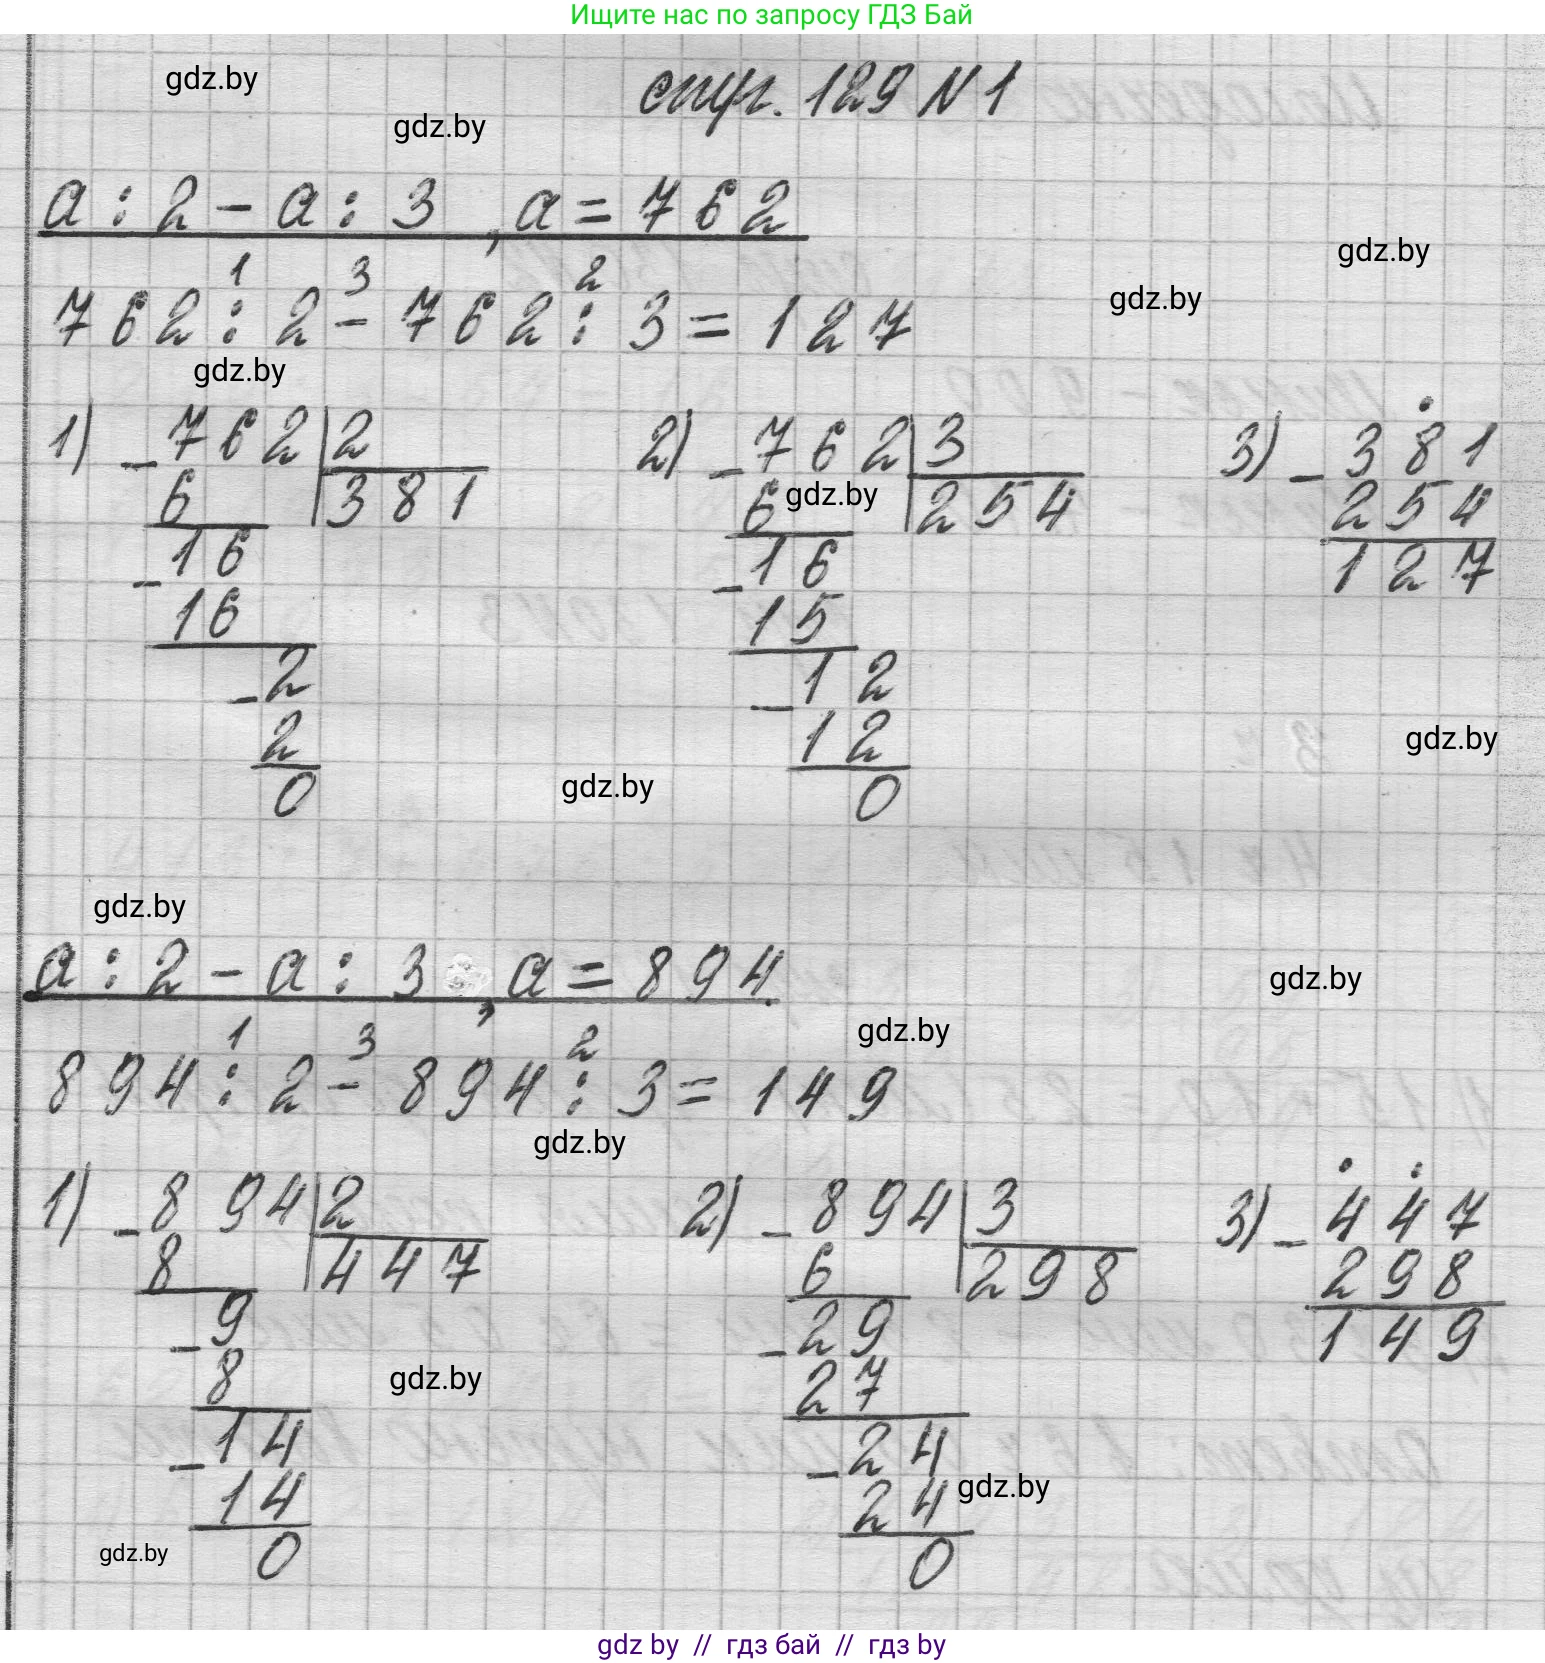 Ищите нас по запросу ГДЗ Бай
gdz.by
стр. 129 N 1
gdz.by
a : 2 - a : 3 , a = 762
gdz.by
1 3 2
762 : 2 - 762 : 3 = 127
gdz.by
gdz.by
1) - 762 | 2 2) - 762 | 3 3) - 381
6 381 6 gdz.by 254 254
- 16 - 16 127
16 15
- 2 - 12
2 12
gdz.by
0 0
gdz.by
gdz.by
a : 2 - a : 3 , a = 894
gdz.by
gdz.by
1 3 2
894 : 2 - 894 : 3 = 149
gdz.by
1) - 894 | 2 2) - 894 | 3 3) - 447
8 447 6 298 298
- 9 - 29 149
8 27
gdz.by
- 14 - 24
14 24
gdz.by
0 0
gdz.by
gdz by // гдз бай // гдз by